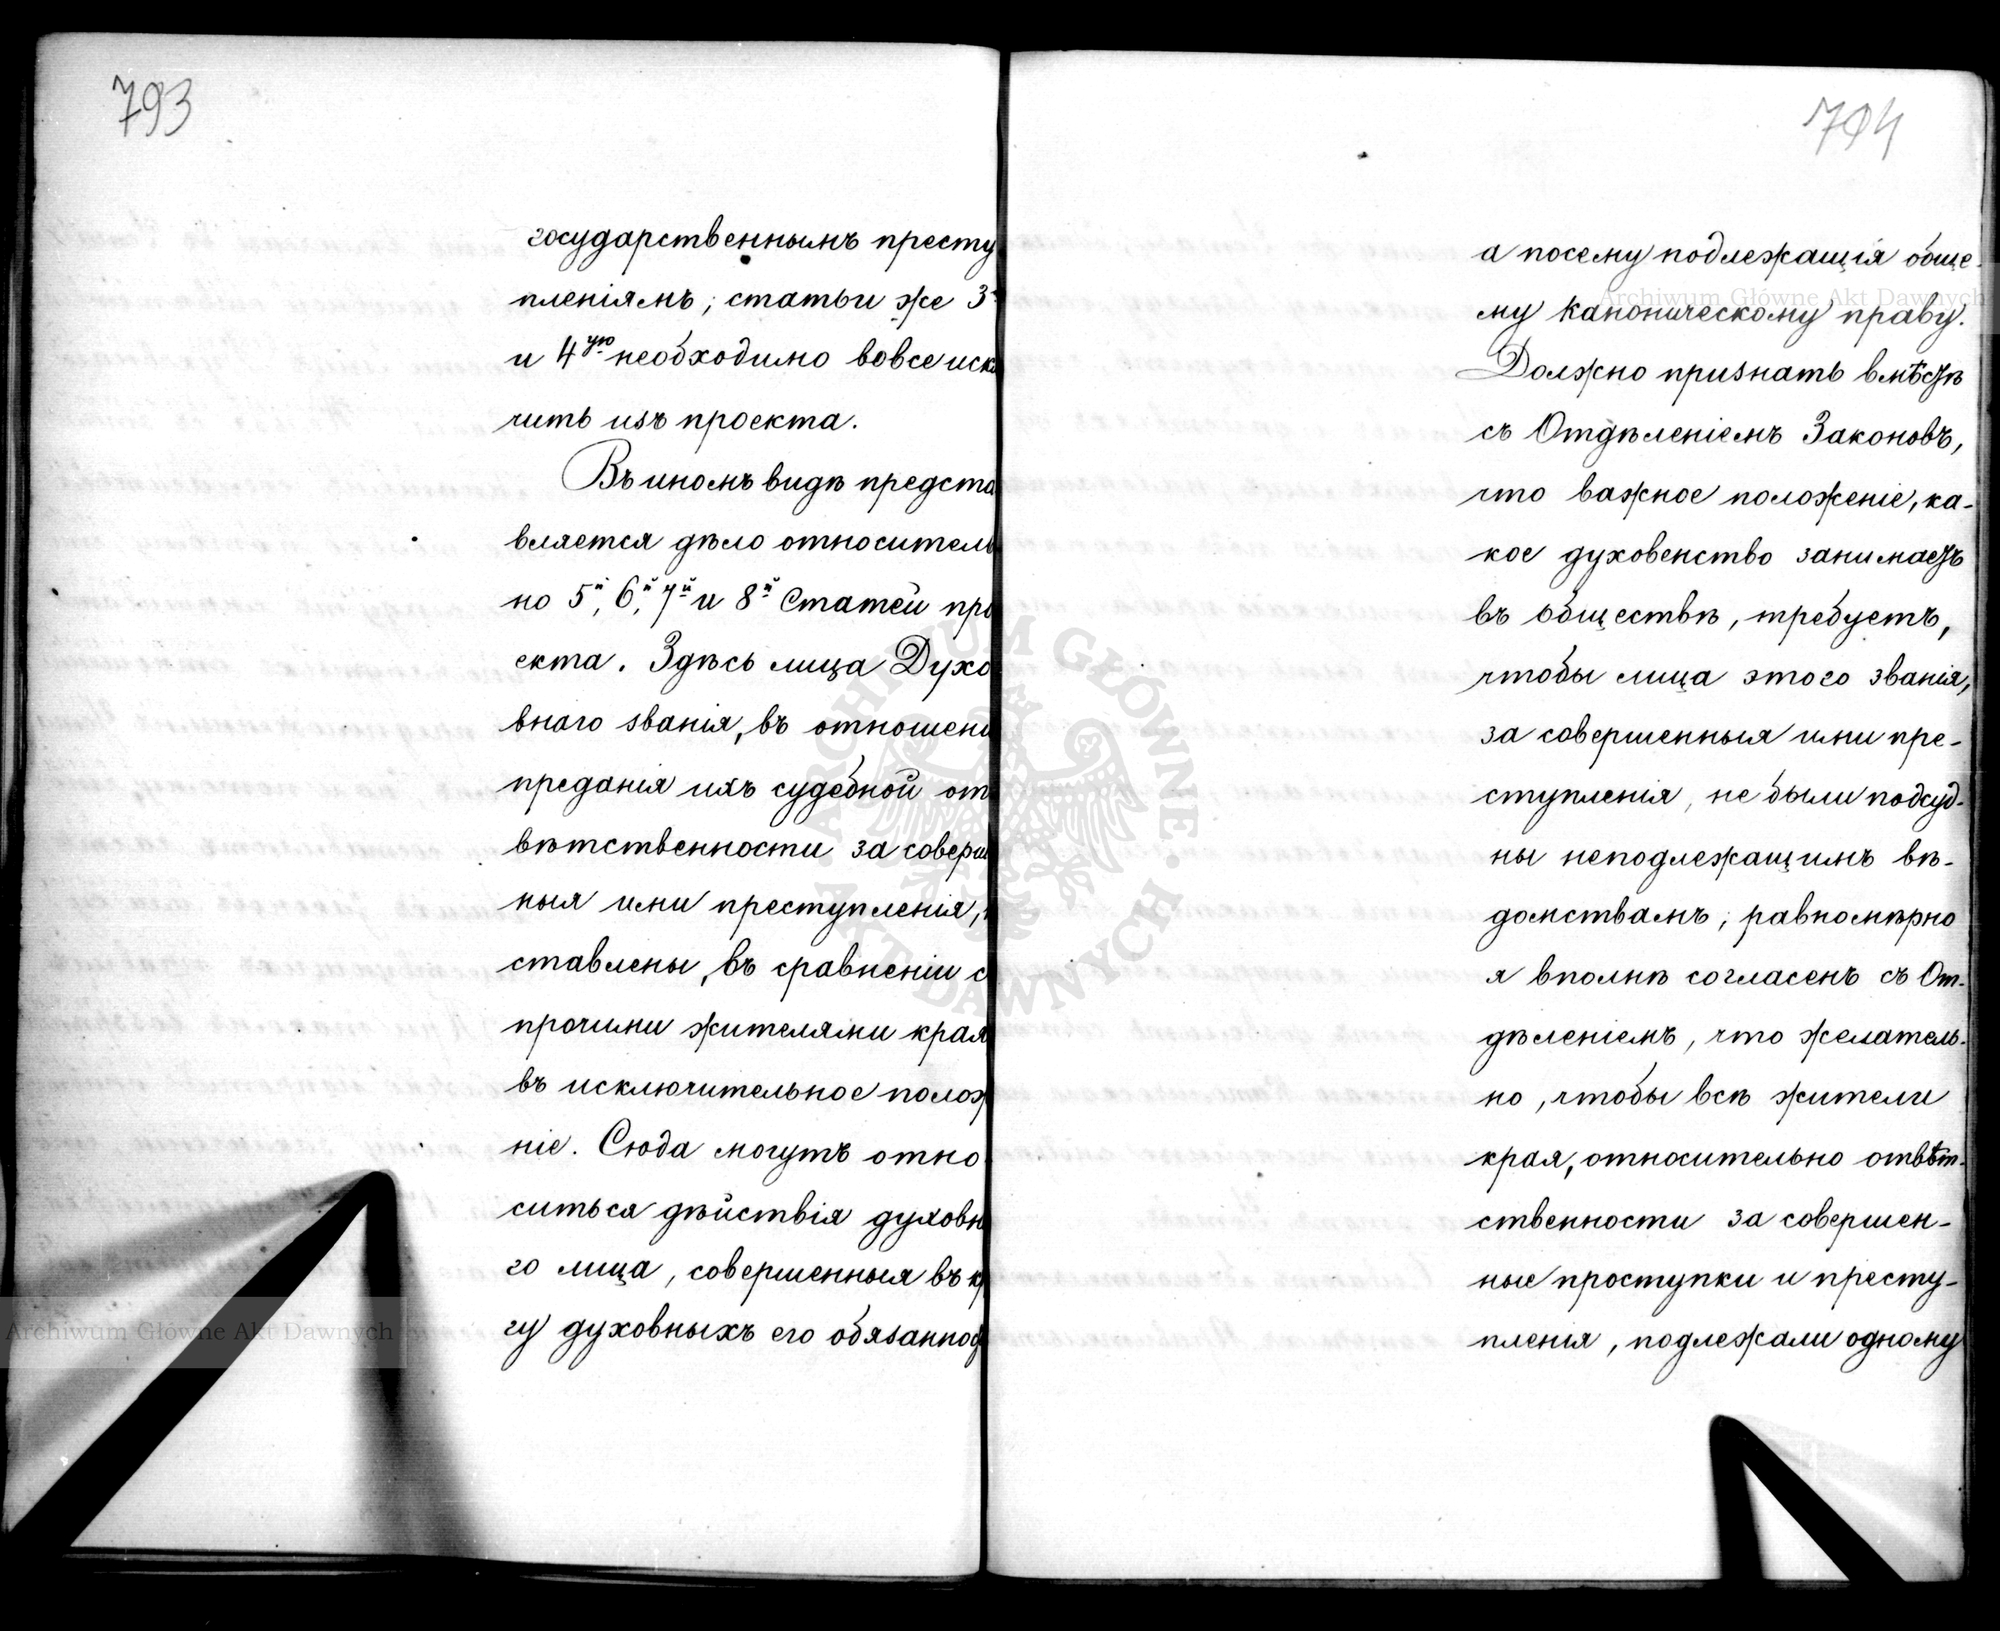 793
государственнымъ престу
пленіямъ; статьи же 3
и 4ую необходимо вовсе искл
чить изъ проекта.
Въ иномъ видѣ предста
вляется дѣло относитель
но 5й, 6й, 7й и 8й Статей про
екта. Здѣсь лица Духо
внаго званія, въ отношени
преданія ихъ судебной от
вѣтственности за соверш
ныя ими преступленія,
ставлены, въ сравненіи с
прочими жителями края
въ исключительное полож
ніе. Сюда могутъ отно
ситься дѣйствія духовн
го лица, совершенныя въ кр
гу духовныхъ его обязанност
794
а посему подлежащія обще-
му каноническому праву.
Должно признать вмѣстѣ
съ Отдѣленіемъ Законовъ,
что важное положеніе, ка-
кое духовенство занимаетъ
въ обществѣ, требуетъ,
чтобы лица этого званія,
за совершенныя ими пре-
ступленія, не были подсуд-
ны неподлежащимъ вѣ-
домствамъ; равномѣрно
я вполнѣ согласенъ съ От-
дѣленіемъ, что желатель-
но, чтобы всѣ жители
края, относительно отвѣт-
ственности за совершен-
ные проступки и престу-
пленія, подлежали одному
Archiwum Główne Akt Dawnych
ARCHIWUM GŁÓWNE
AKT DAWNYCH
Archiwum Główne Akt Dawnych